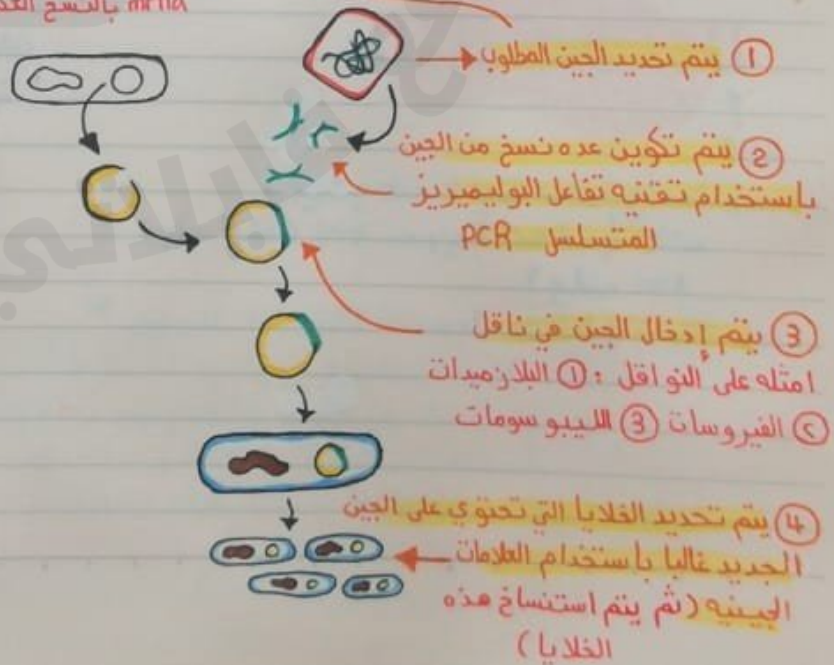 mRNA بالنسخ
① يتم تحديد الجين المطلوب
② يتم تكوين عده نسخ من الجين
باستخدام تقنيه تفاعل البوليميريز
المتسلسل PCR
③ يتم إدخال الجين في ناقل
امثله على النواقل : ① البلازميدات
② الفيروسات ③ الليبوسومات
④ يتم تحديد الخلايا التي تحتوي على الجين
الجديد غالبا بأستخدام العلامات
الجينيه (ثم يتم استنساخ هذه
الخلايا)